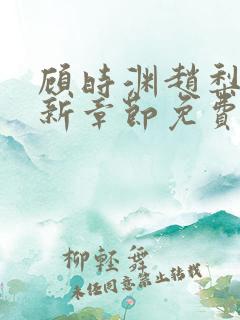 顾时渊赵梨
新章节免费
柳轻舞
未经同意禁止转载